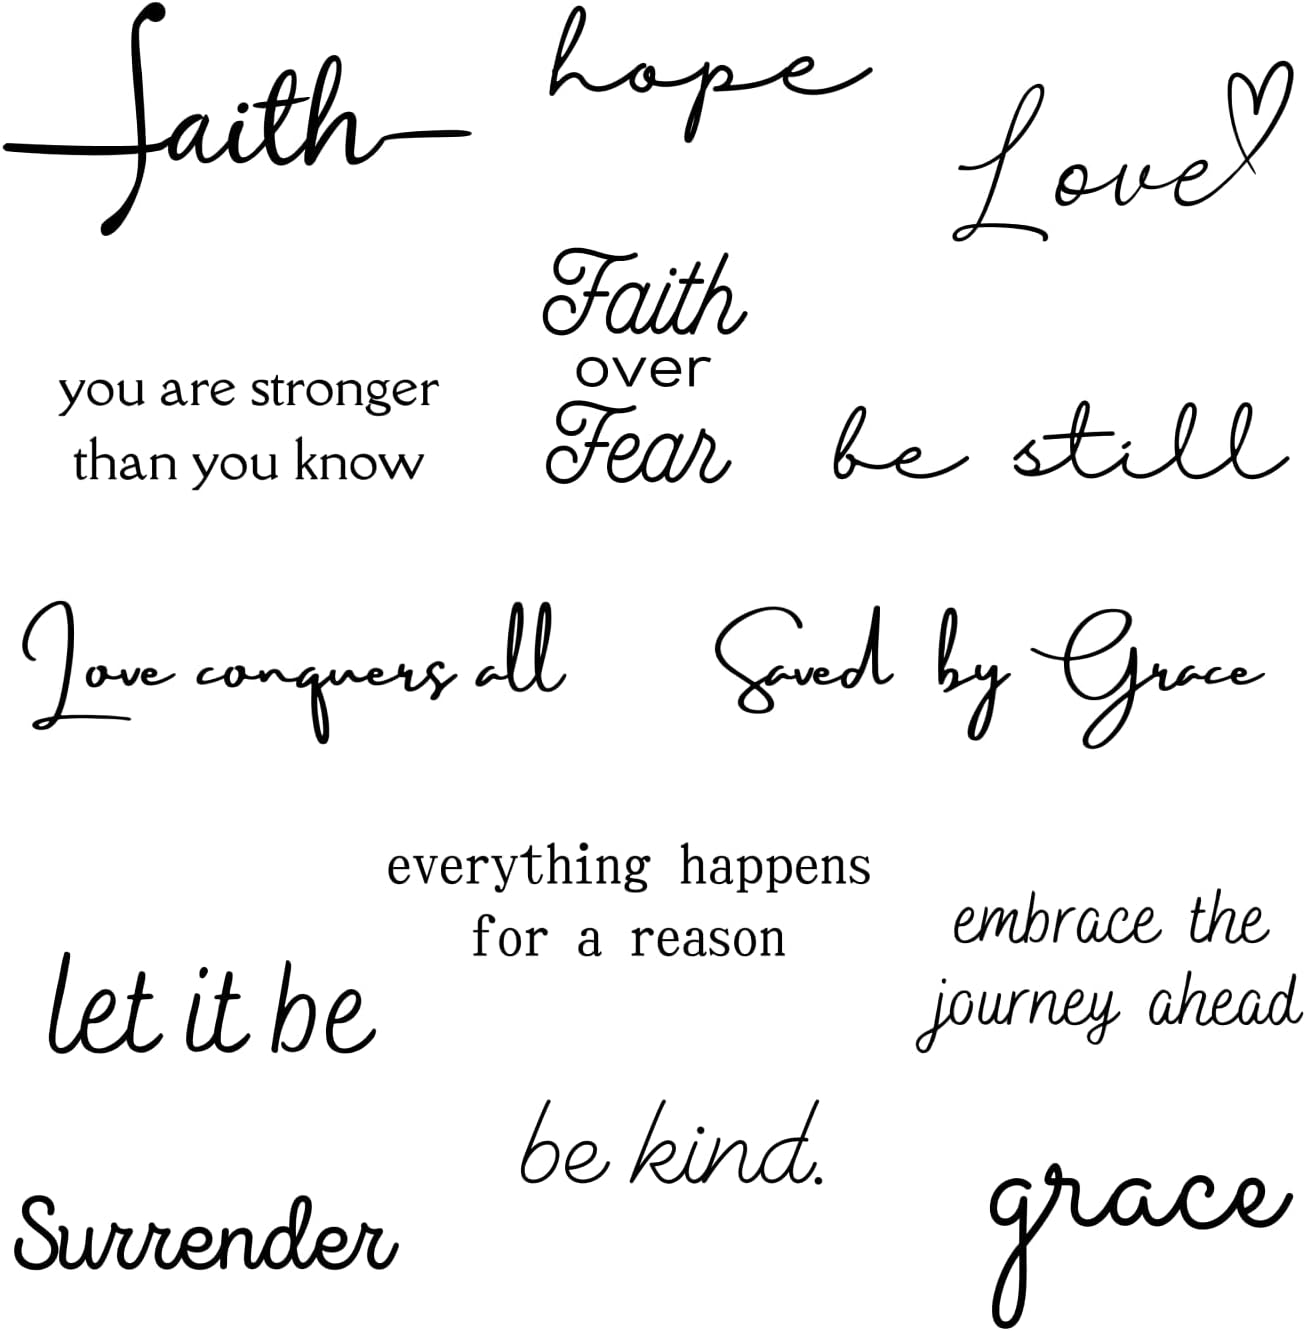 faith
hope
Love
Faith
over
Fear
you are stronger
than you know
be still
Love conquers all
Saved by Grace
everything happens
for a reason
embrace the
journey ahead
let it be
be kind.
grace
Surrender